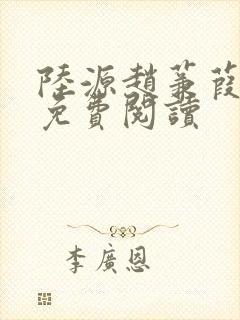 陸源趙蒹葭
免費閱讀
李廣恩